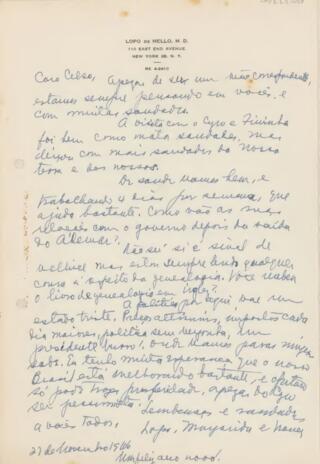 LOPO DE MELLO, M. D.
110 EAST END AVENUE
NEW YORK 28, N. Y.
Caro Celso, apezar de ser um mão correspondente,
estamos sempre pensando em vocês, e
com muitas saudades.
A visita com o Cyro e
foi bem como mata saudades, mas
deixou com mais saudades da nossa
terra e dos nossos.
De saude vamos bem, e
trabalhando 4 dias por semana, que
ajuda bastante. Como vão as suas
relações com o governo depois da saida
do
Não sei si é sinal de
velhice mas estou sempre lendo qualquer
cousa a respeito da genealogia. Você
o livro de genealogia em
A politica por aqui vae um
estado triste. Preços altissimos, impostos cada
dia maiores, politica sem vergonha, um
presidente burro! onde vamos parar não
sabe. Eu tenho muita esperança que o nosso
Brasil está melhorando bastante, e
só pode trazer prosperidade, apezar do que
ser pessimista!
Lembranças e saudades
a vocês todos, Lopo, Margarida e
27 de Novembro 1966
Um feliz ano novo!